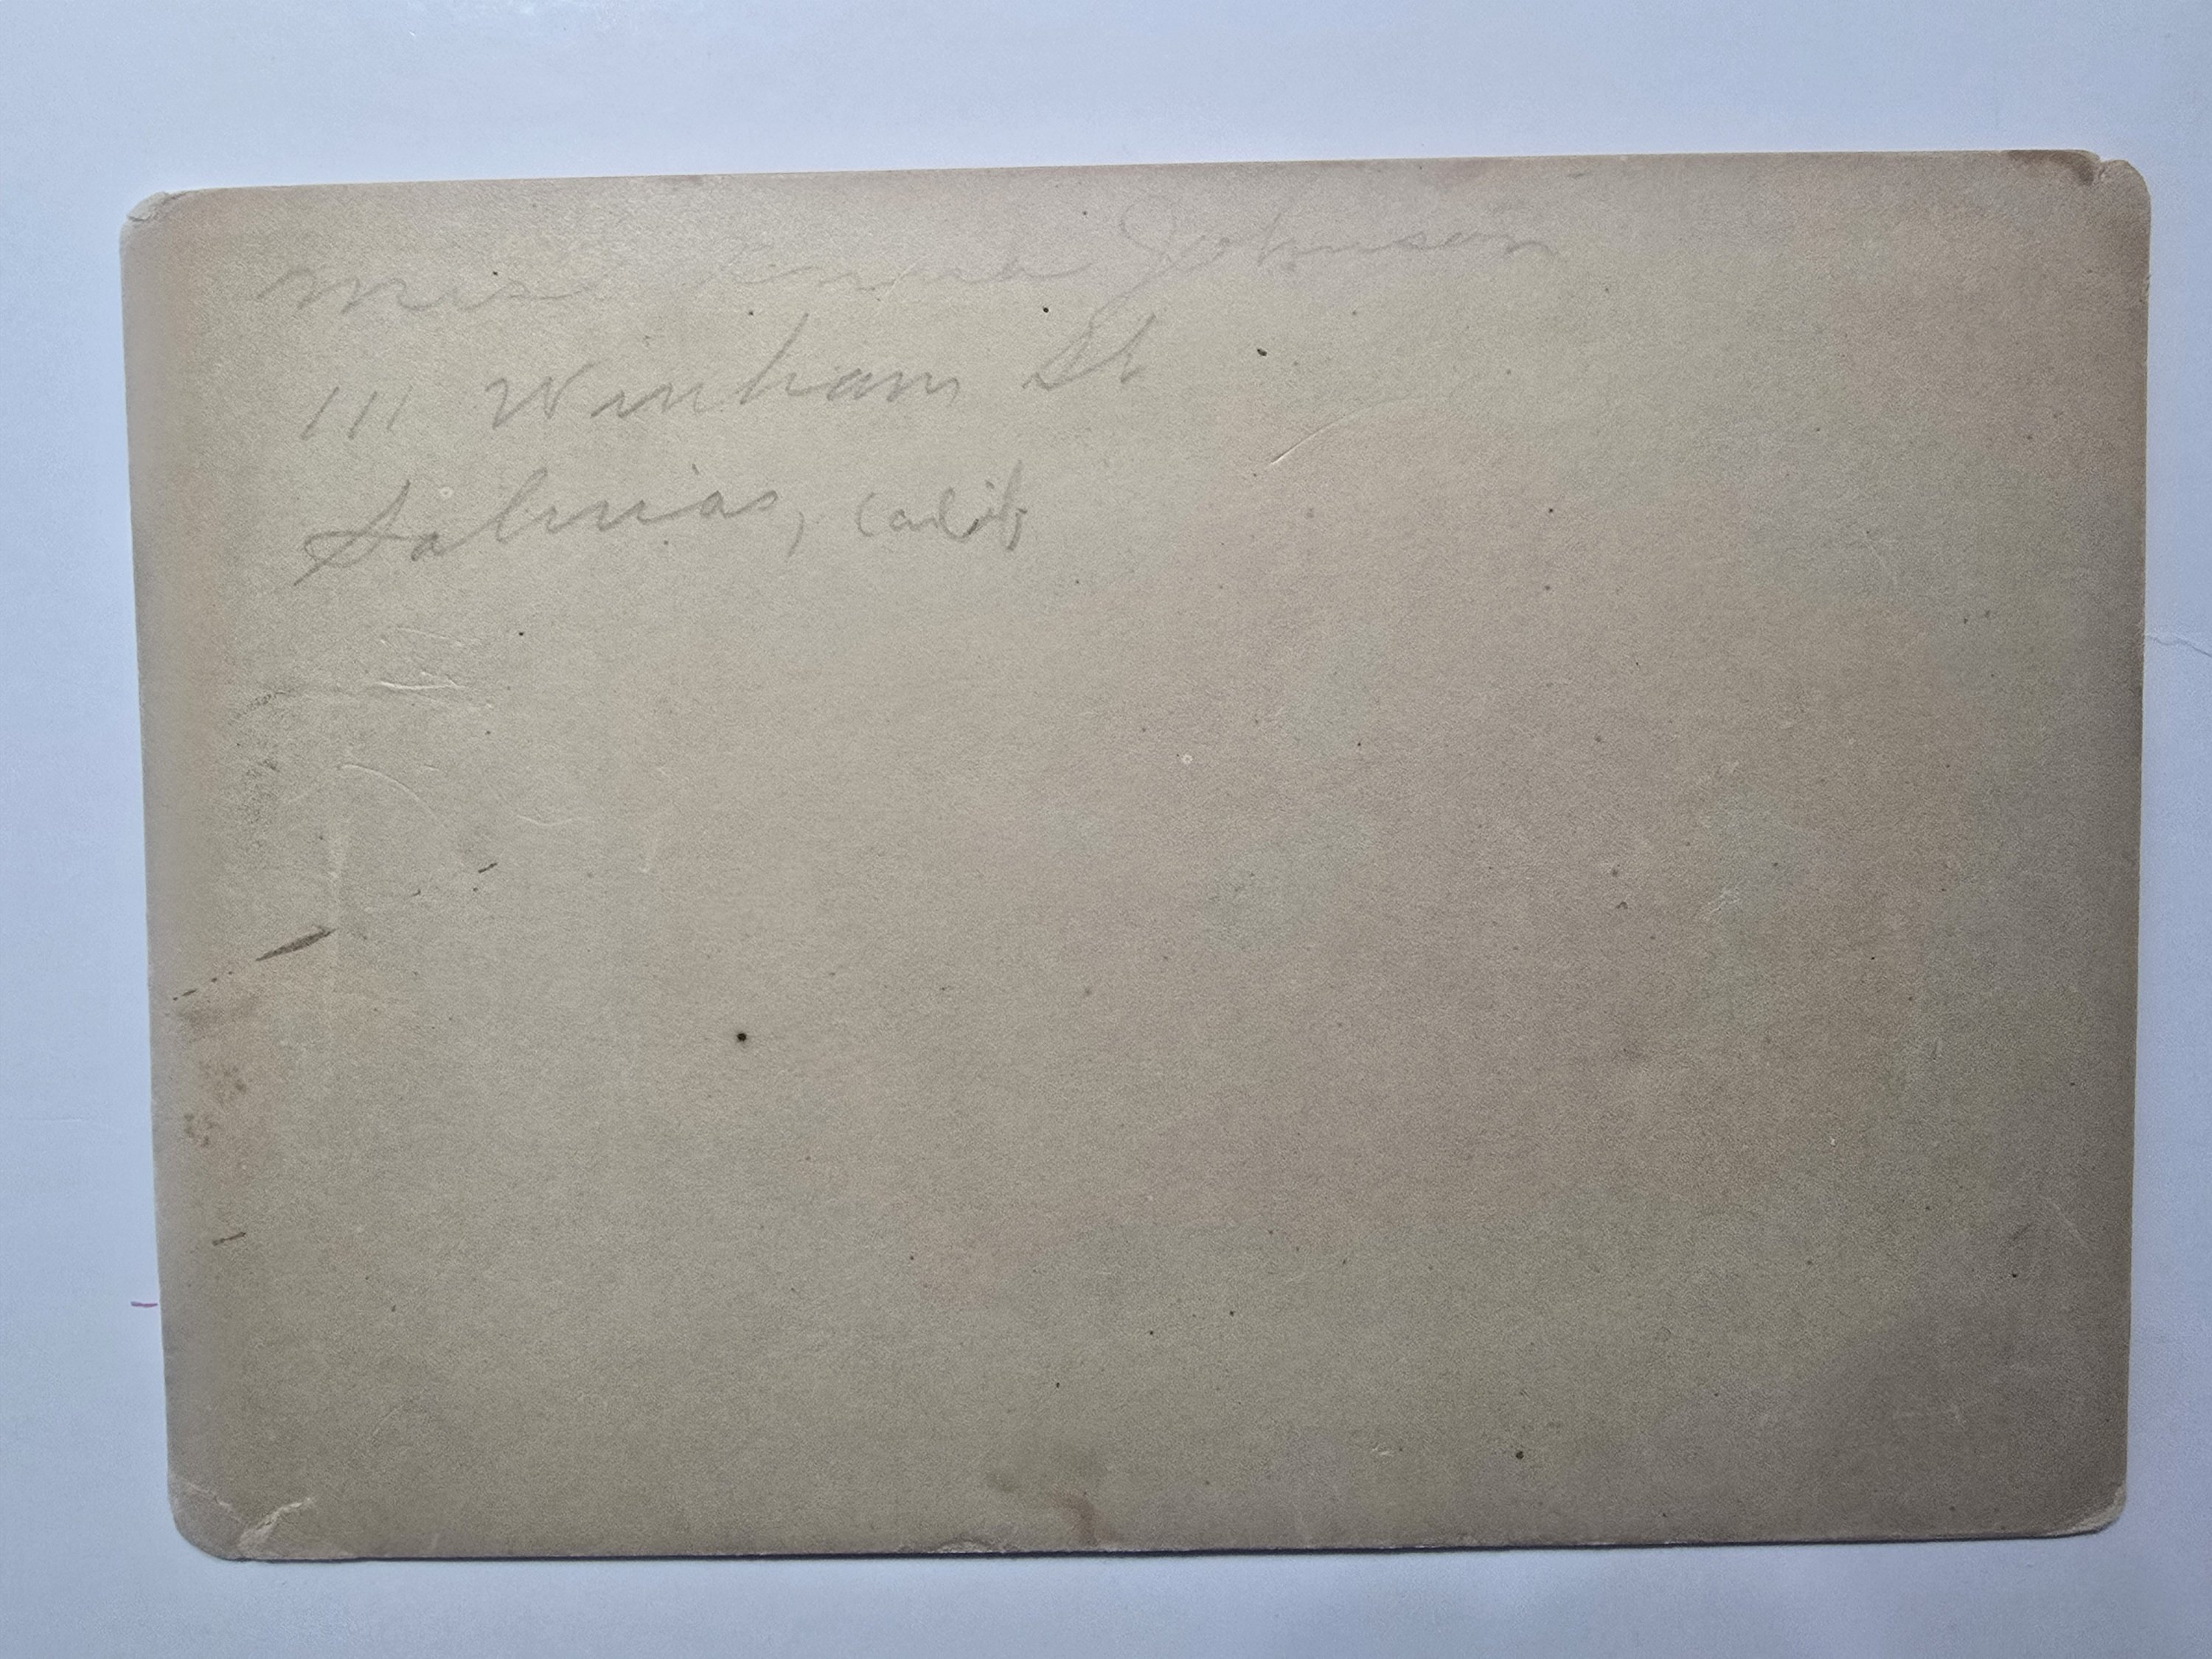 Mrs Johnson
111 Winham St
Salinas, Calif